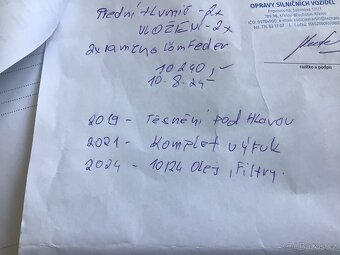 OPRAVY SILNIČNÍCH VOZIDEL
Přední tlumič - 2x
ULOŽENÍ - 2x
2x ramena
10 290,-
10.8.24
razítko a podpis
2019 - Těsnění pod hlavou
2021 - Komplet výfuk
2024 - 10/24 Olej, Filtry.